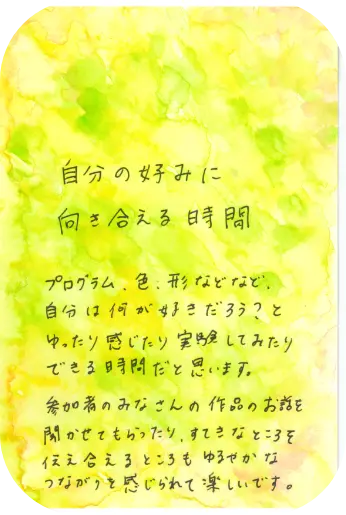 自分の好みに
向き合える時間
プログラム、色、形などなど、
自分は何が好きだろう？と
ゆったり感じたり実験してみたり
できる時間だと思います。
参加者のみなさんの作品のお話を
聞かせてもらったり、すてきなところを
伝え合えるところもゆるやかな
つながりを感じられて楽しいです。